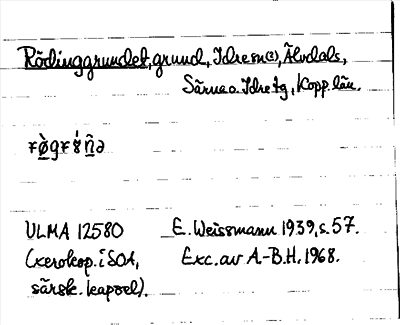 Rödinggrundet, grund, Idre sn(2), Älvdals,
Särna o. Idre tg, Kopp. län.
ULMA 12580 E. Weissmann 1939, s. 57.
(xerokop. i SOA, Exc. av A.-B.H. 1968.
särsk. kapsel).